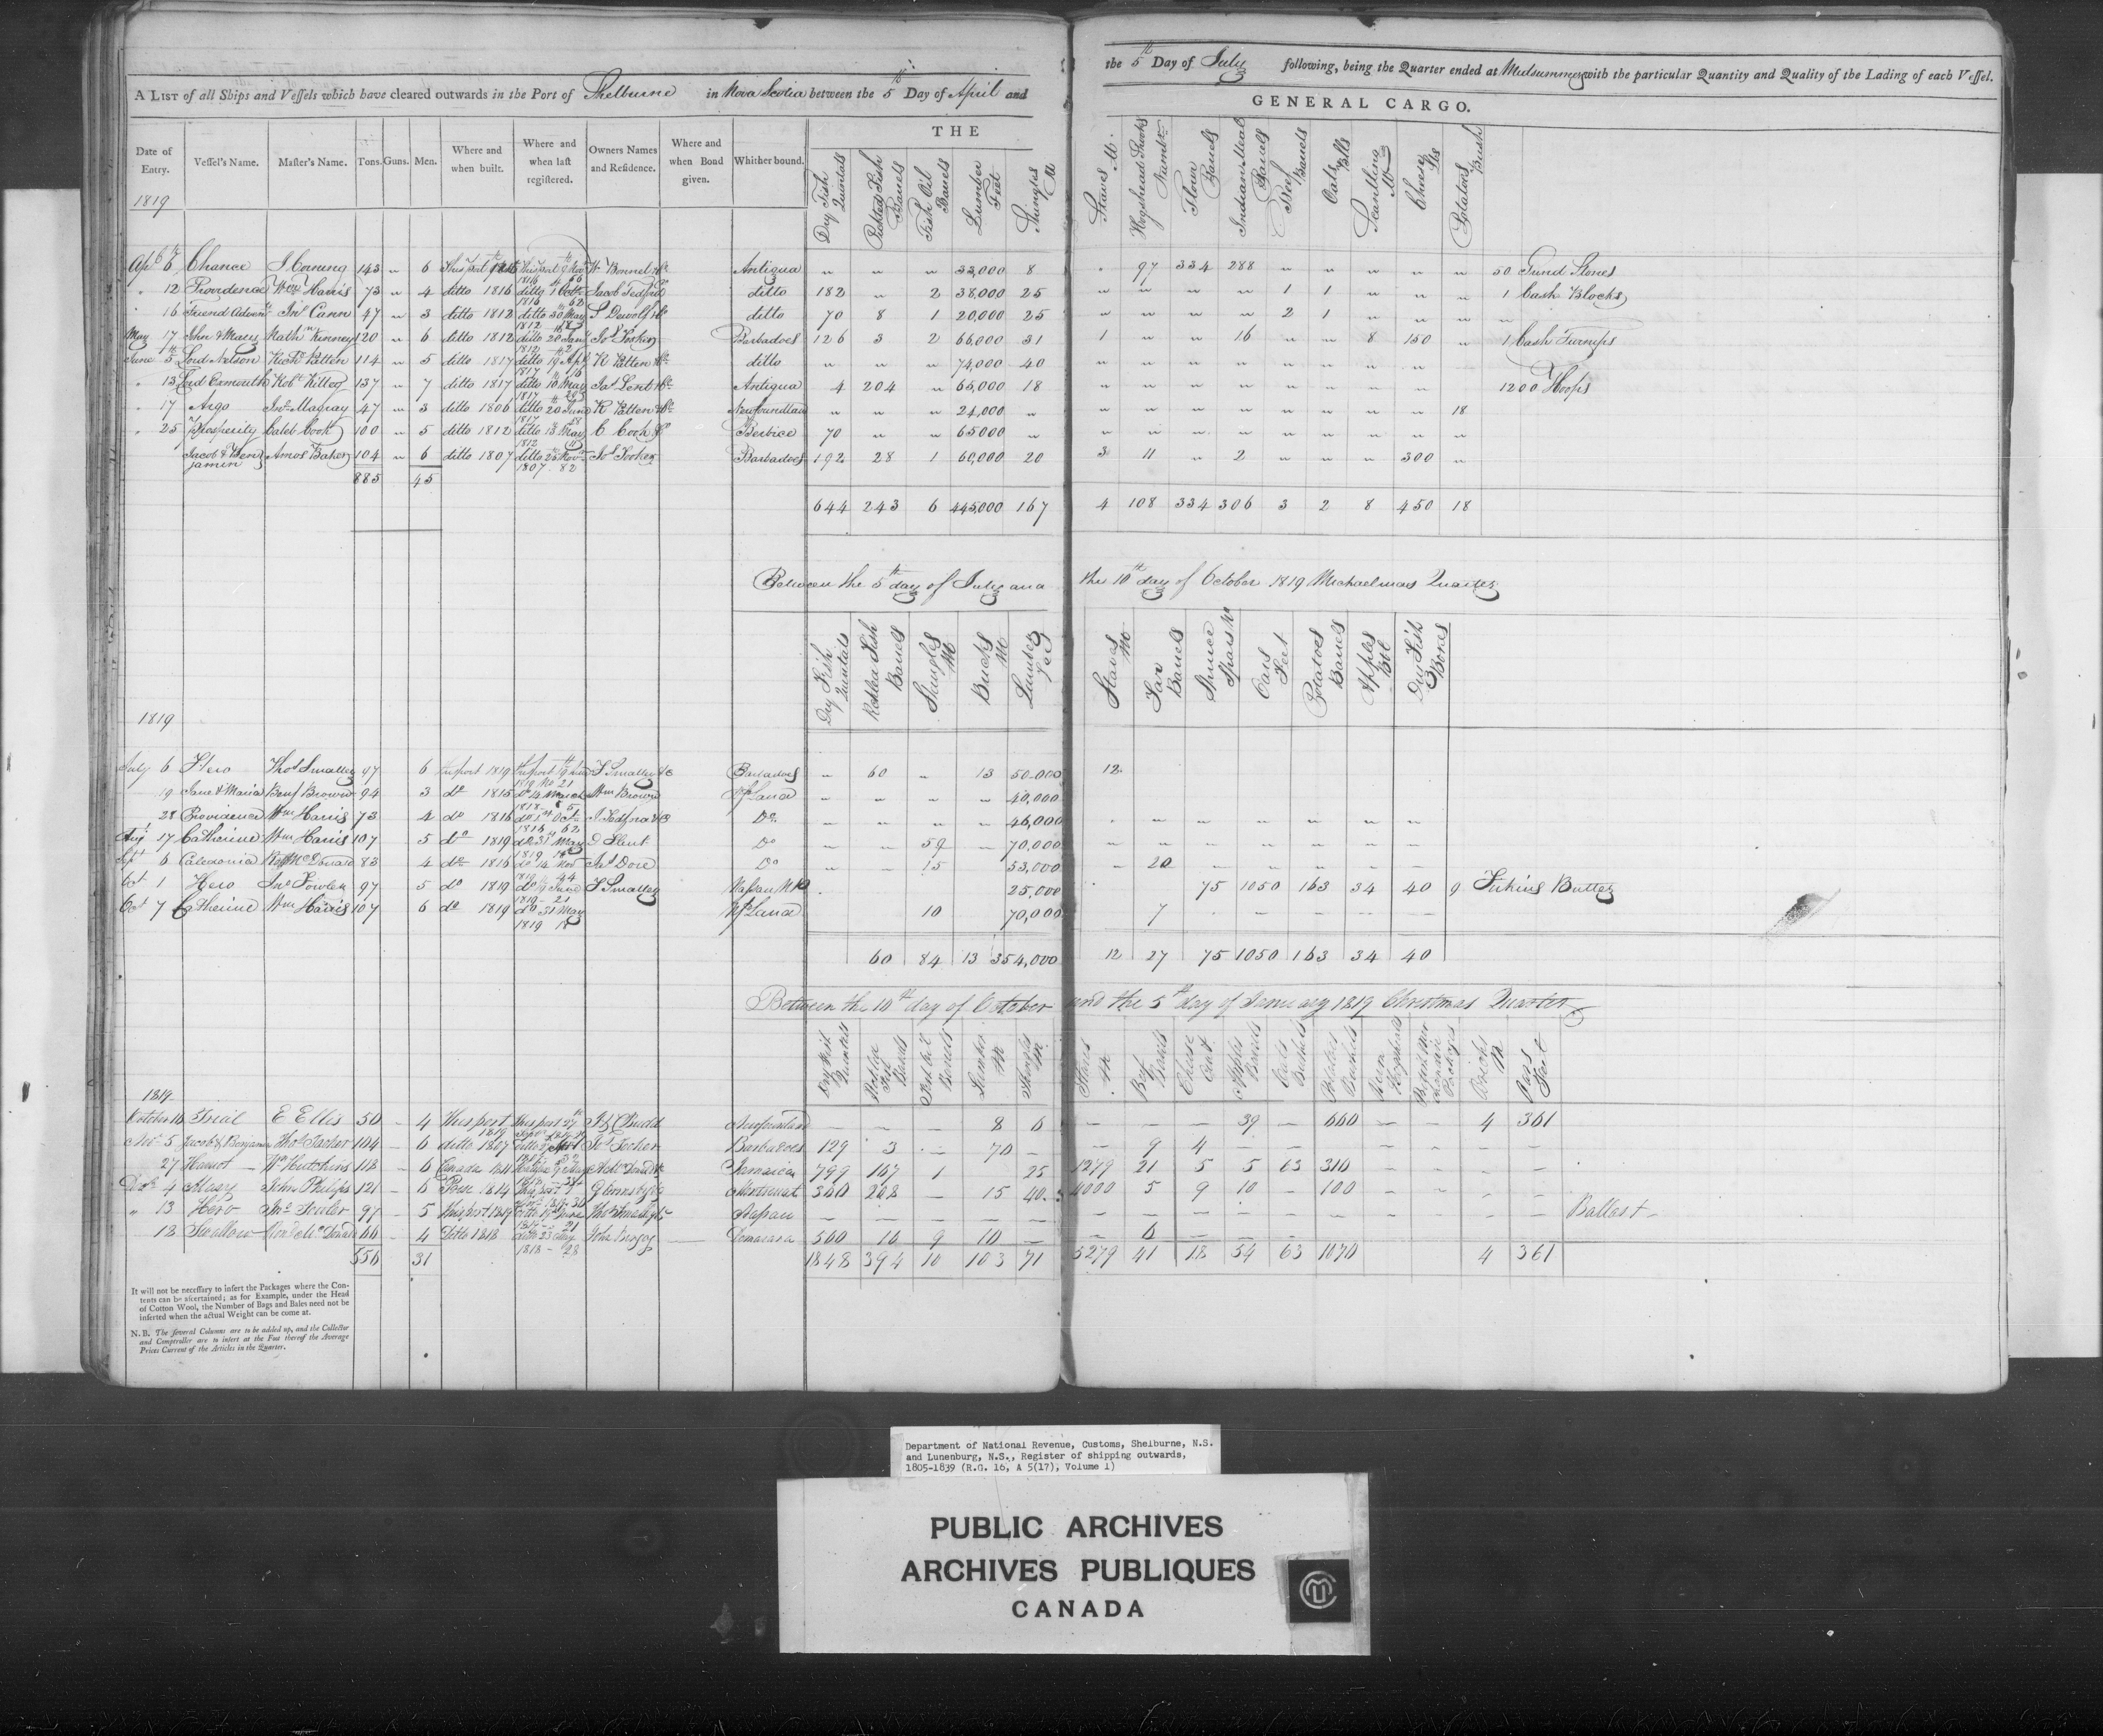 A LIST of all Ships and Vessels which have cleared outwards in the Port of Shelburne in Nova Scotia between the 5th Day of April and the 5th Day of July following, being the Quarter ended at Midsummer with the particular Quantity and Quality of the Lading of each Vessel.
THE GENERAL CARGO.
Date of Entry. Vessel's Name. Master's Name. Tons. Guns. Men. Where and when built. Where and when last registered. Owners Names and Residence. Where and when Bond given. Whither bound. Dry Fish Quintals Pickled Fish Barrels Fish Oil Barrels Lumber Feet Shingles M Staves M. Hogshead Shooks Number Flour Barrels Indian Meal Barrels Beef Barrels Oats Blls Scantling M Cheese lbs Potatoes Bush
1819
Apl 6th Chance J Corning 143 " 6 This port Antigua " " " 33,000 8 " 97 334 288 " " " " " 50 Stones
" 12 Providence Wm Harris 73 " 4 ditto 1816 ditto 1 Octr 1816 62 Jacob Tedford ditto 182 " 2 38,000 25 " " " " 1 1 " " " 1 Cask Blocks
" 16 Friend Advent Jno Cann 47 " 3 ditto 1812 ditto 30 May 1812 ditto 70 8 1 20,000 25 " " " " 2 1 " " "
May 17 John & Mary Nath Kinney 120 " 6 ditto 1812 ditto 20 Jany 1812 Barbadoes 126 3 2 66,000 31 1 " " 16 " " 8 150 " 1 Cask Turnips
June 5th Lord Nelson Richd Patten 114 " 5 ditto 1817 ditto 19 Apl 1817 R Patten ditto " " " 74,000 40 " " " " " " " "
" 13 Lord Exmouth Robt Killey 137 " 7 ditto 1817 ditto 10 May 1817 Jas Lent Antigua 4 204 " 65,000 18 " " " " " " " " 1200 Hoops
" 17 Argo Jno Magray 47 " 3 ditto 1806 ditto 20 June 1817 R Patten Newfoundland " " " 24,000 " " " " " " " " " 18
" 25 Prosperity Caleb Cook 100 " 5 ditto 1812 ditto 13 May 1812 C Cook Berbice 70 " " 65000 " " " " " " " " " "
Jacob & Benjamin Amos Baker 104 " 6 ditto 1807 ditto 25 Novr 1807. 82 Jos Tooker Barbadoes 192 28 1 60,000 20 3 11 " 2 " " " 300 "
885 45
644 243 6 445,000 167 4 108 334 306 3 2 8 450 18
Between the 5th day of July and the 10th day of October 1819 Michaelmas Quarter
Dry Fish Quintals Pickled Fish Barrels Shingles M Bricks M Lumber Feet Staves M Tar Barrels Spruce Spars No Oars Feet Potatoes Barrels Apples Bbl Dry Fish Boxes
1819
July 6 Hero Thos Smalley 97 6 this port 1819 1819 No 21 T Smalley &c Barbadoes " 60 " 13 50,000 12
19 Jane & Maria Benj Brown 94 3 do 1815 do 14 March 1818 Wm Brown Nfland " " " " 40,000
" 28 Providence Wm Harris 73 4 do 1816 do 1st Octr 1816 62 J Tedford &c Do " " " " 46,000 " " " " " " "
Aug 17 Catherine Wm Harris 107 5 do 1819 do 31 May 1819 18 Do " - 59 - 70,000 " " " " " " "
Sept 6 Caledonia McDonald 83 4 do 1816 do 14 Nov Jas Dore Do " - 15 - 53,000 - 20
Oct 1 Hero Jno Fowler 97 5 do 1819 do June 1819 - 21 T Smalley Nassau NP 25,000 75 1050 163 34 40 9 Firkins Butter
Oct 7 Catherine Wm Harris 107 6 do 1819 do 31 May 1819 18 Nfland 10 70,000 7
60 84 13 354,000 12 27 75 1050 163 34 40
Between the 10th day of October and the 5th day of January 1819 Christmas Quarter
Dry Fish Quintals Pickled Fish Barrels Fish Oil Barrels Lumber M Shingles M Staves M Beef Barrels Cheese Cwt Apples Barrels Oats Bushels Potatoes Bushels Bricks M Oars Feet
1819
October 16 Trial E Ellis 50 - 4 This port 1819 Newfoundland 8 6 - - - 39 - 660 - - 4 361
Nov 5 Jacob & Benjamin Thos Tooker 104 - 6 ditto 1807 Jos Tooker Barbadoes 129 3 - 70 - - 9 4 -
27 Harriot Wm Hutchins 118 - 6 Canada 1811 Jamaica 799 167 1 25 1279 21 5 5 63 310 - - - -
Decr 4 Mary John Philips 121 - 6 1814 Montserrat 360 208 - 15 40 4000 5 9 10 - 100 - - - -
" 13 Hero Jno Fowler 97 - 5 This port 1819 Thos Smalley Nassau - - - - - - - - - - - - - - - Ballast
13 Swallow McDonald 66 - 4 Ditto 1818 ditto 23 May 1818 - 28 Demarara 560 16 9 10 - - 6 - -
556 31 1848 394 10 103 71 5279 41 18 54 63 1070 4 361
It will not be necessary to insert the Packages where the Contents can be ascertained; as for Example, under the Head of Cotton Wool, the Number of Bags and Bales need not be inserted when the actual Weight can be come at.
N.B. The several Columns are to be added up, and the Collector and Comptroller are to insert at the Foot thereof the Average Prices Current of the Articles in the Quarter.
Department of National Revenue, Customs, Shelburne, N.S.
and Lunenburg, N.S., Register of shipping outwards,
1805-1839 (R.G. 16, A 5(17), Volume 1)
PUBLIC ARCHIVES
ARCHIVES PUBLIQUES
CANADA